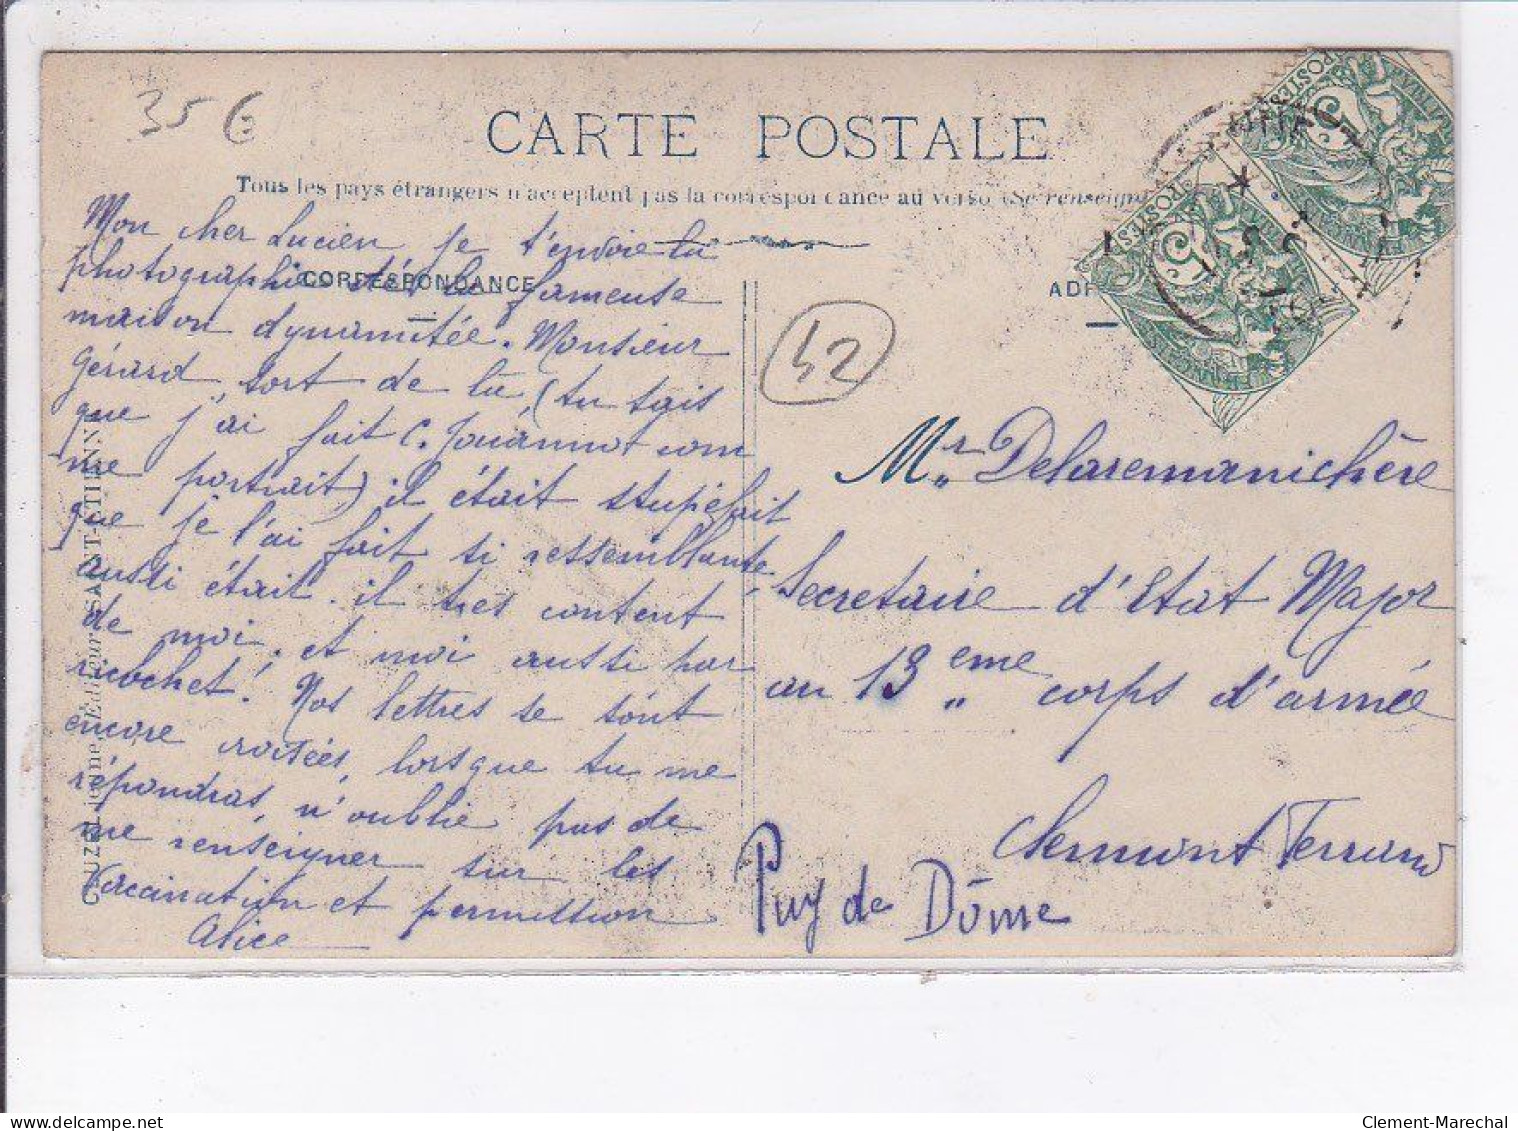 35 €
CARTE POSTALE
Tous les pays étrangers n'acceptent pas la correspondance au verso (Se renseigner
CORRESPONDANCE
Mon cher Lucien, je t'envoie la
photographie de la fameuse
maison dynamitée. Monsieur
Gérard, sort de là (tu sais
que j'ai fait c. Jouannot com
me portrait) il était stupéfait
que je l'ai fait si ressemblante,
aussi était il très content
de moi, et moi aussi par
ricochet! Nos lettres se sont
encore croisées, lorsque tu me
répondras, n'oublie pas de
me renseigner sur les
Vaccination et permission
Alice
42
Mr Delaremanichère
Secrétaire d'Etat Major
au 13 eme corps d'armée
Clermont Ferrand
Puy de Dôme
jeune, Editeur SAINT-ETIENNE
POSTES
5
POSTES
5
Clement-Marechal